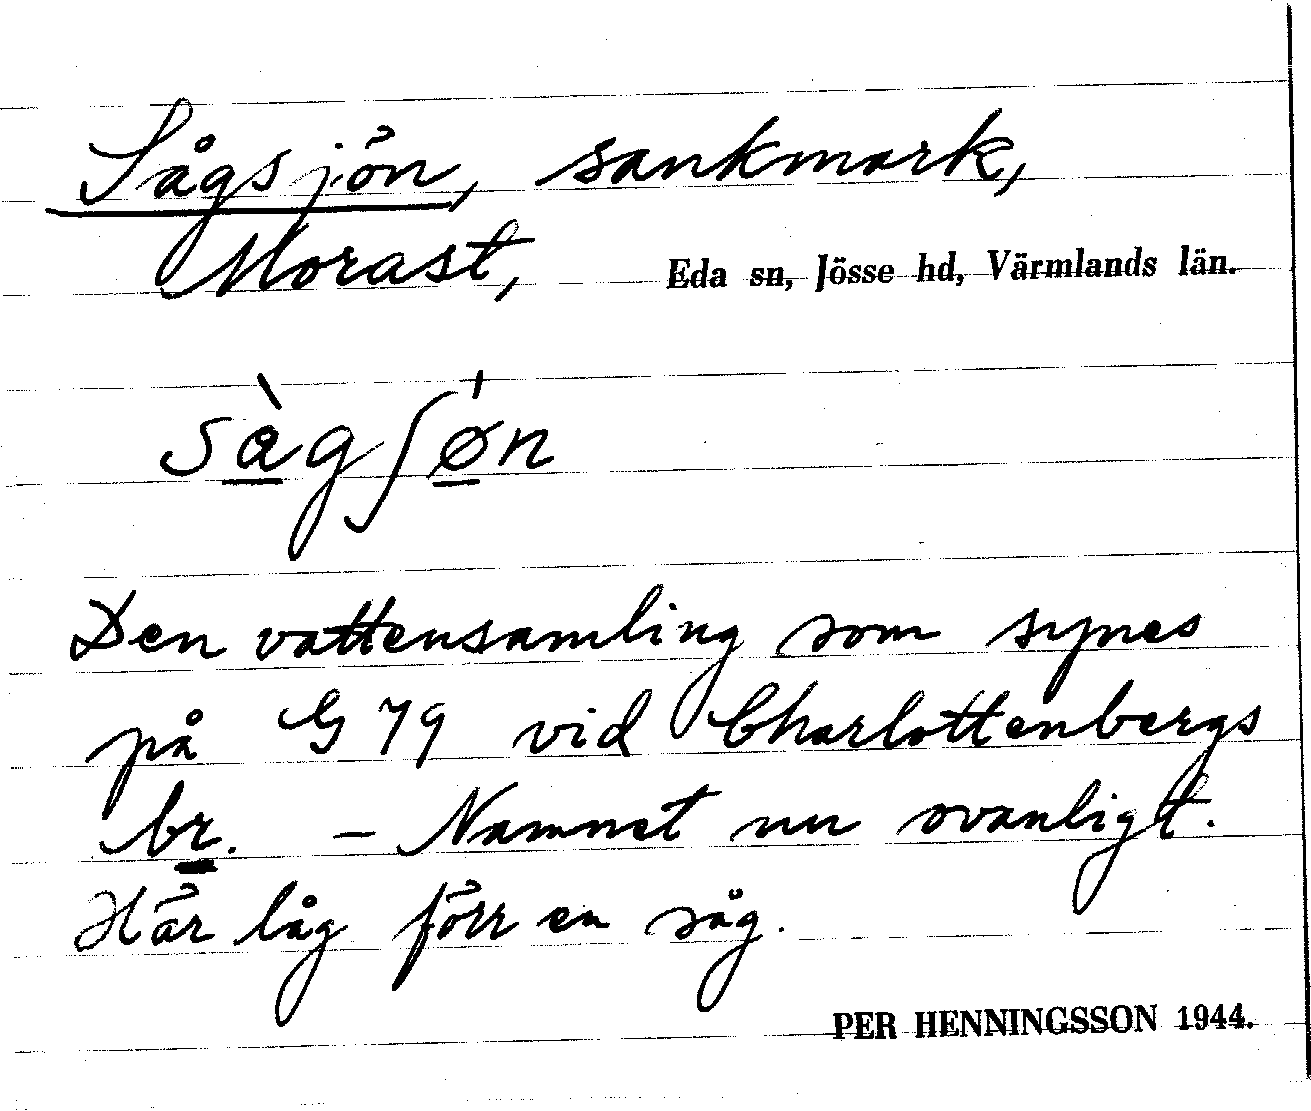 Sågsjön, sankmark,
Morast, Eda sn, Jösse hd, Värmlands län.
sàgʃǿn
Den vattensamling som synes
på G 79 vid Charlottenbergs
br. – Namnet nu ovanligt.
Här låg förr en såg.
PER HENNINGSSON 1944.